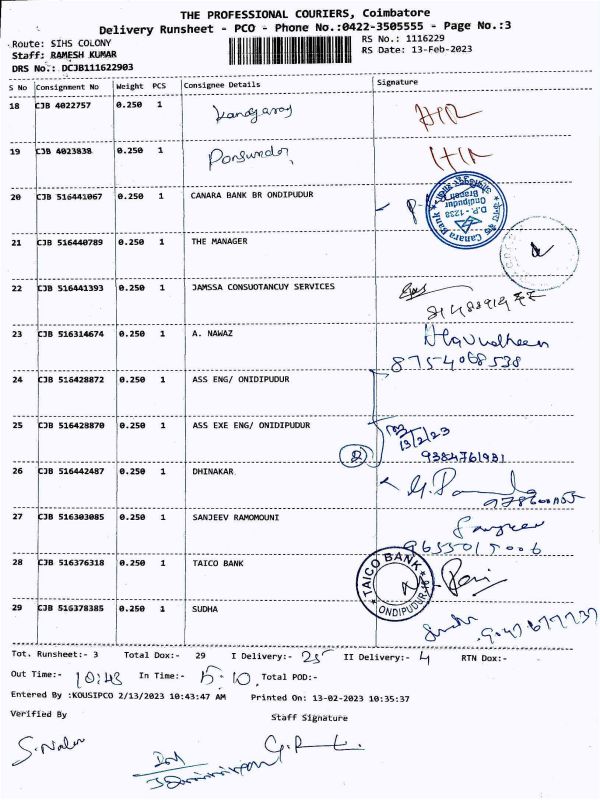 THE PROFESSIONAL COURIERS, Coimbatore
Delivery Runsheet - PCO - Phone No.:0422-3505555 - Page No.:3
Route: SIHS COLONY
RS No.: 1116229
Staff: RAMESH KUMAR
RS Date: 13-Feb-2023
DRS No.: DCJB111622903
S No Consignment No Weight PCS Consignee Details Signature
18 CJB 4022757 0.250 1
19 CJB 4023838 0.250 1 Ponsundar
20 CJB 516441067 0.250 1 CANARA BANK BR ONDIPUDUR
Canara Bank D.P. - 1238 Ondipudur Branch
21 CJB 516440789 0.250 1 THE MANAGER
22 CJB 516441393 0.250 1 JAMSSA CONSUOTANCUY SERVICES
23 CJB 516314674 0.250 1 A. NAWAZ
8754068538
24 CJB 516428872 0.250 1 ASS ENG/ ONIDIPUDUR
25 CJB 516428870 0.250 1 ASS EXE ENG/ ONIDIPUDUR
13/2/23
2 9384761931
26 CJB 516442487 0.250 1 DHINAKAR
27 CJB 516303085 0.250 1 SANJEEV RAMOMOUNI
Sanjeev
9655015006
28 CJB 516376318 0.250 1 TAICO BANK
TAICO BANK ONDIPUDUR
29 CJB 516378385 0.250 1 SUDHA
Tot. Runsheet:- 3 Total Dox:- 29 I Delivery:- 25 II Delivery:- 4 RTN Dox:-
Out Time:- 10:43 In Time:- 5-10 Total POD:-
Entered By :KOUSIPCO 2/13/2023 10:43:47 AM Printed On: 13-02-2023 10:35:37
Verified By Staff Signature